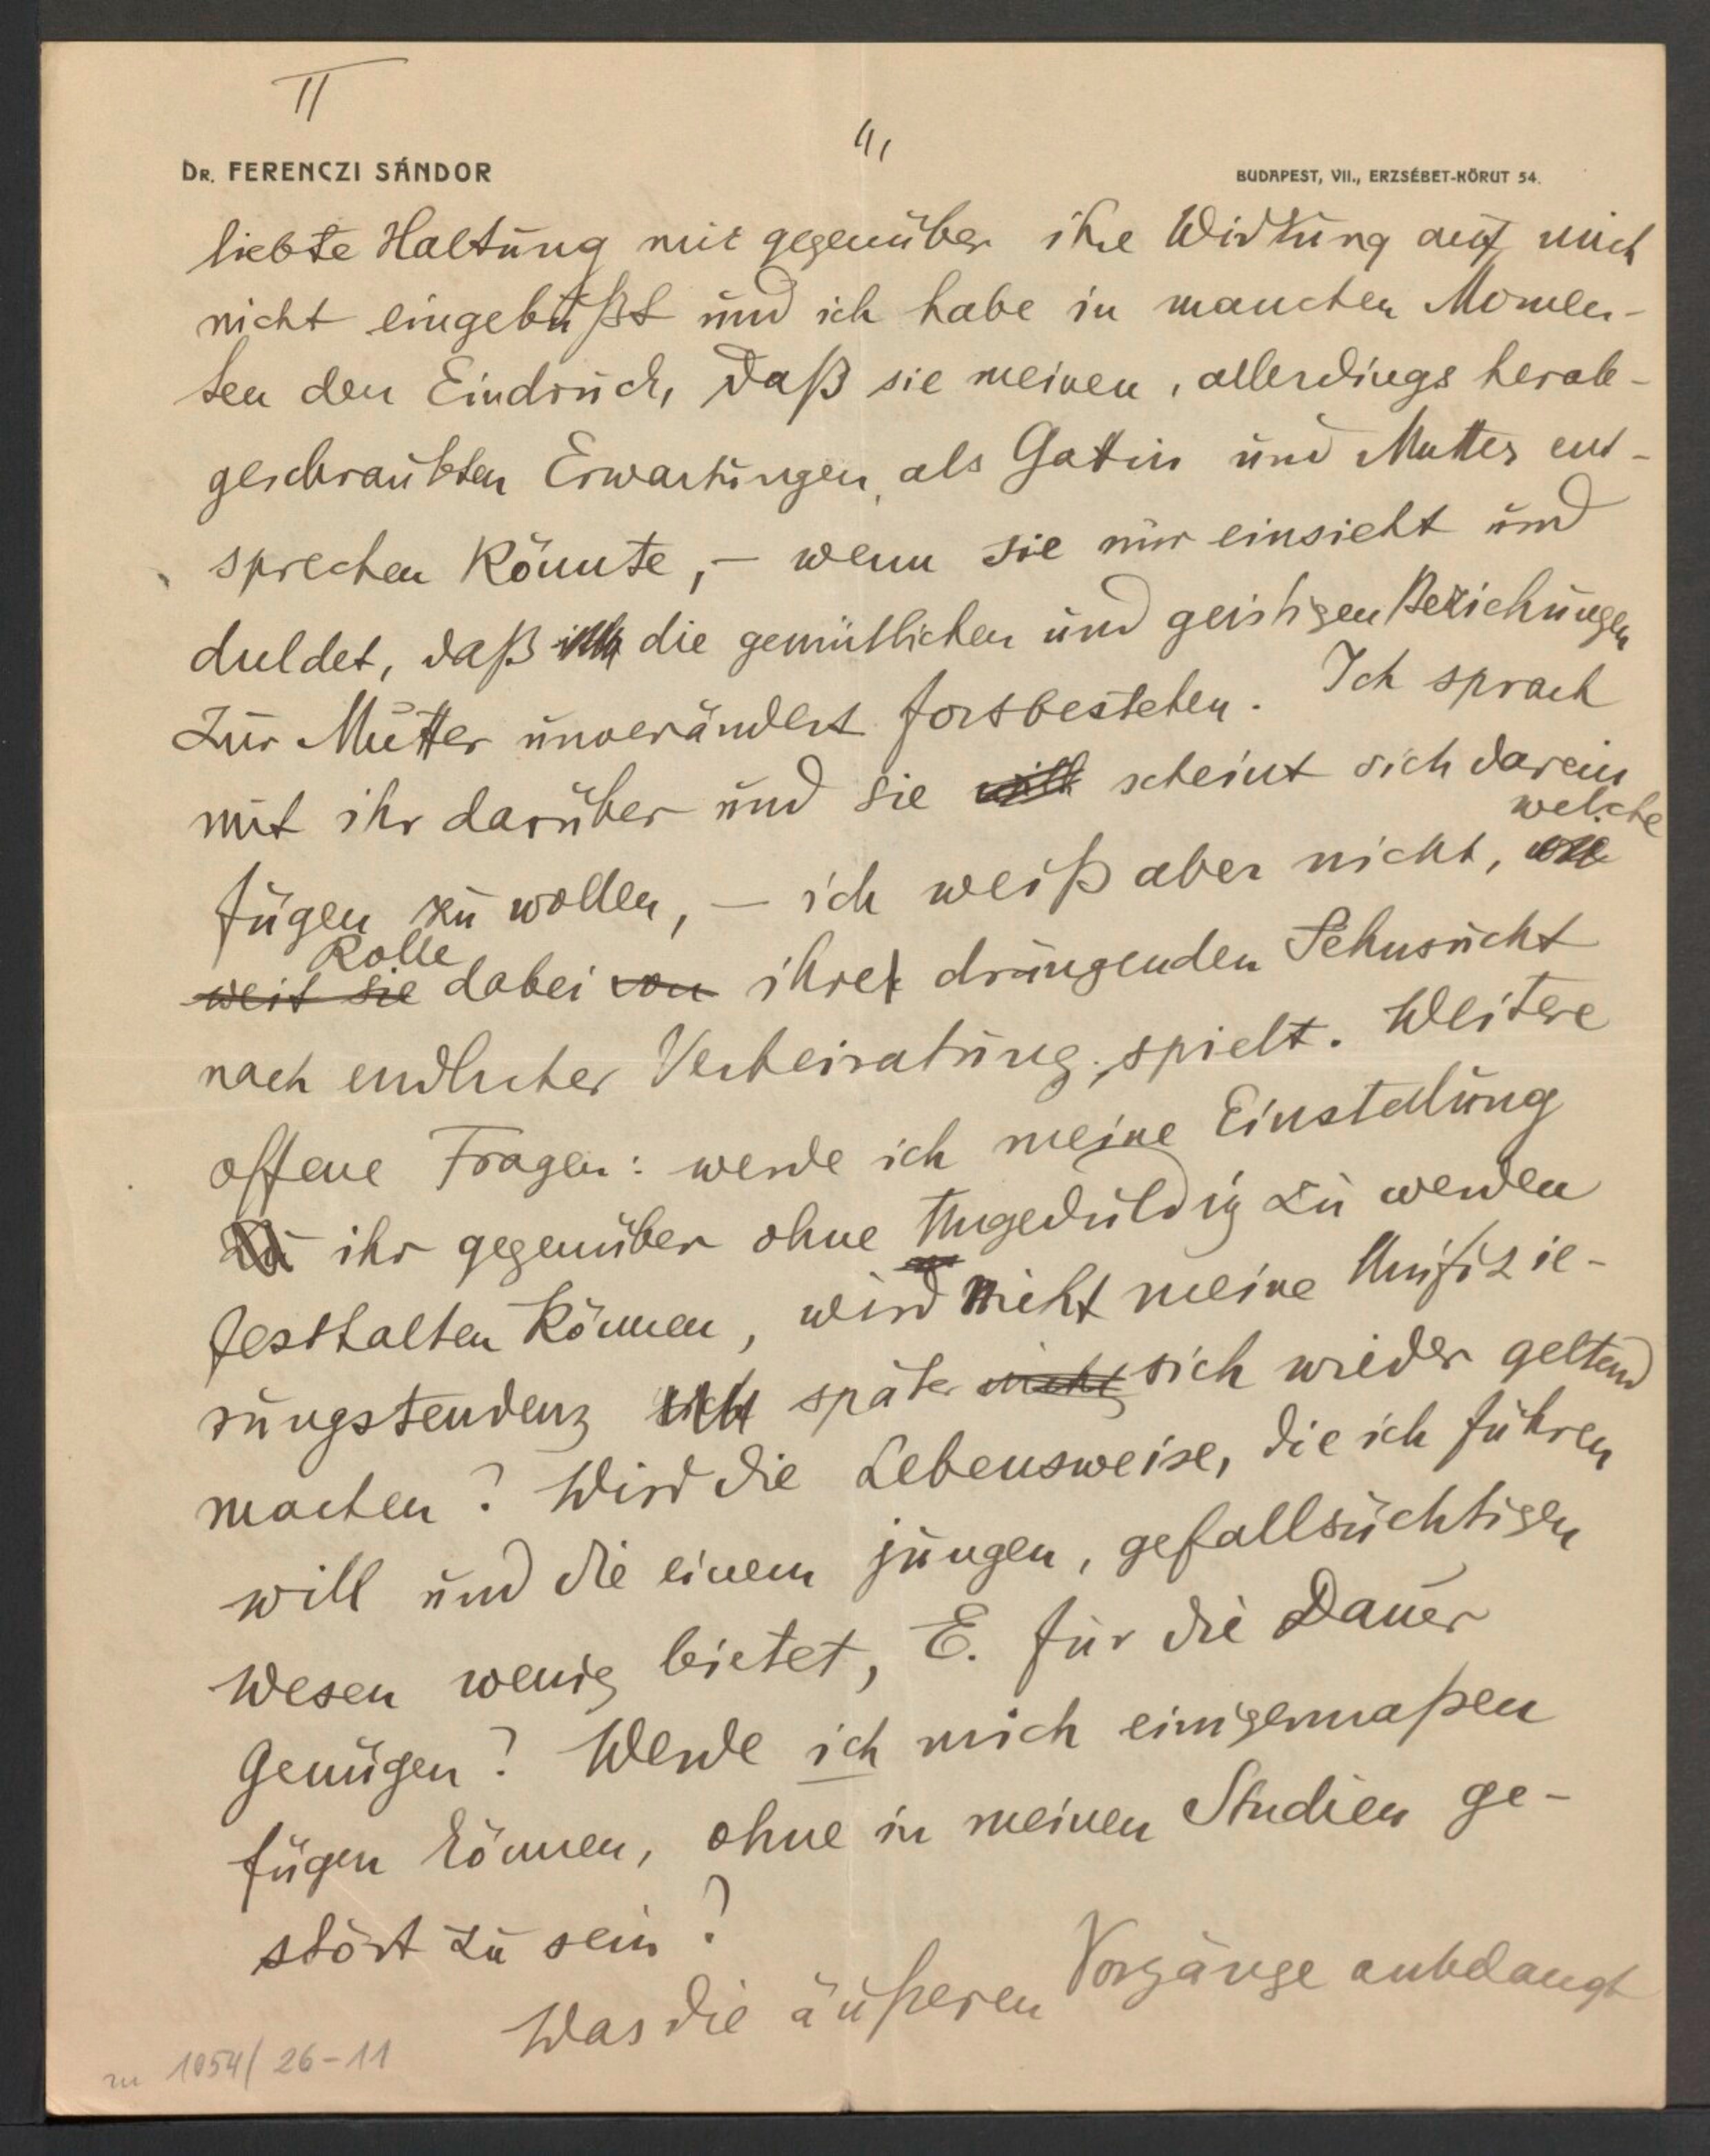 II
4,
DR. FERENCZI SÁNDOR
BUDAPEST, VII., ERZSÉBET-KÖRUT 54.
liebte Haltung mir gegenüber ihre Wirkung auf mich
nicht eingebüßt und ich habe in manchen Momen-
ten den Eindruck, daß sie meinen, allerdings herab-
geschraubten Erwartungen, als Gattin und Mutter ent-
sprechen könnte, – wenn sie nur einsieht und
duldet, daß die gemütlichen und geistigen Beziehungen
zur Mutter unverändert fortbestehen. Ich sprach
mit ihr darüber und sie will scheint sich darein
welche
fügen zu wollen, – ich weiß aber nicht,
Rolle
weit sie dabei von ihre drängenden Sehnsucht
nach endlicher Verheiratung spielt. Weitere
offene Fragen: werde ich meine Einstellung
zu ihr gegenüber ohne Ungeduldig zu werden
festhalten können, wird nicht meine Unifizie-
rungstendenz sich später nicht sich wieder geltend
machen? Wird die Lebensweise, die ich führen
will und die einem jungen, gefallsüchtigen
Wesen wenig bietet, E. für die Dauer
Genügen? Werde ich mich einigermaßen
fügen können, ohne in meinen Studien ge-
stört zu sein?
Was die äußeren Vorgänge anbelangt
zu 1054/26-11